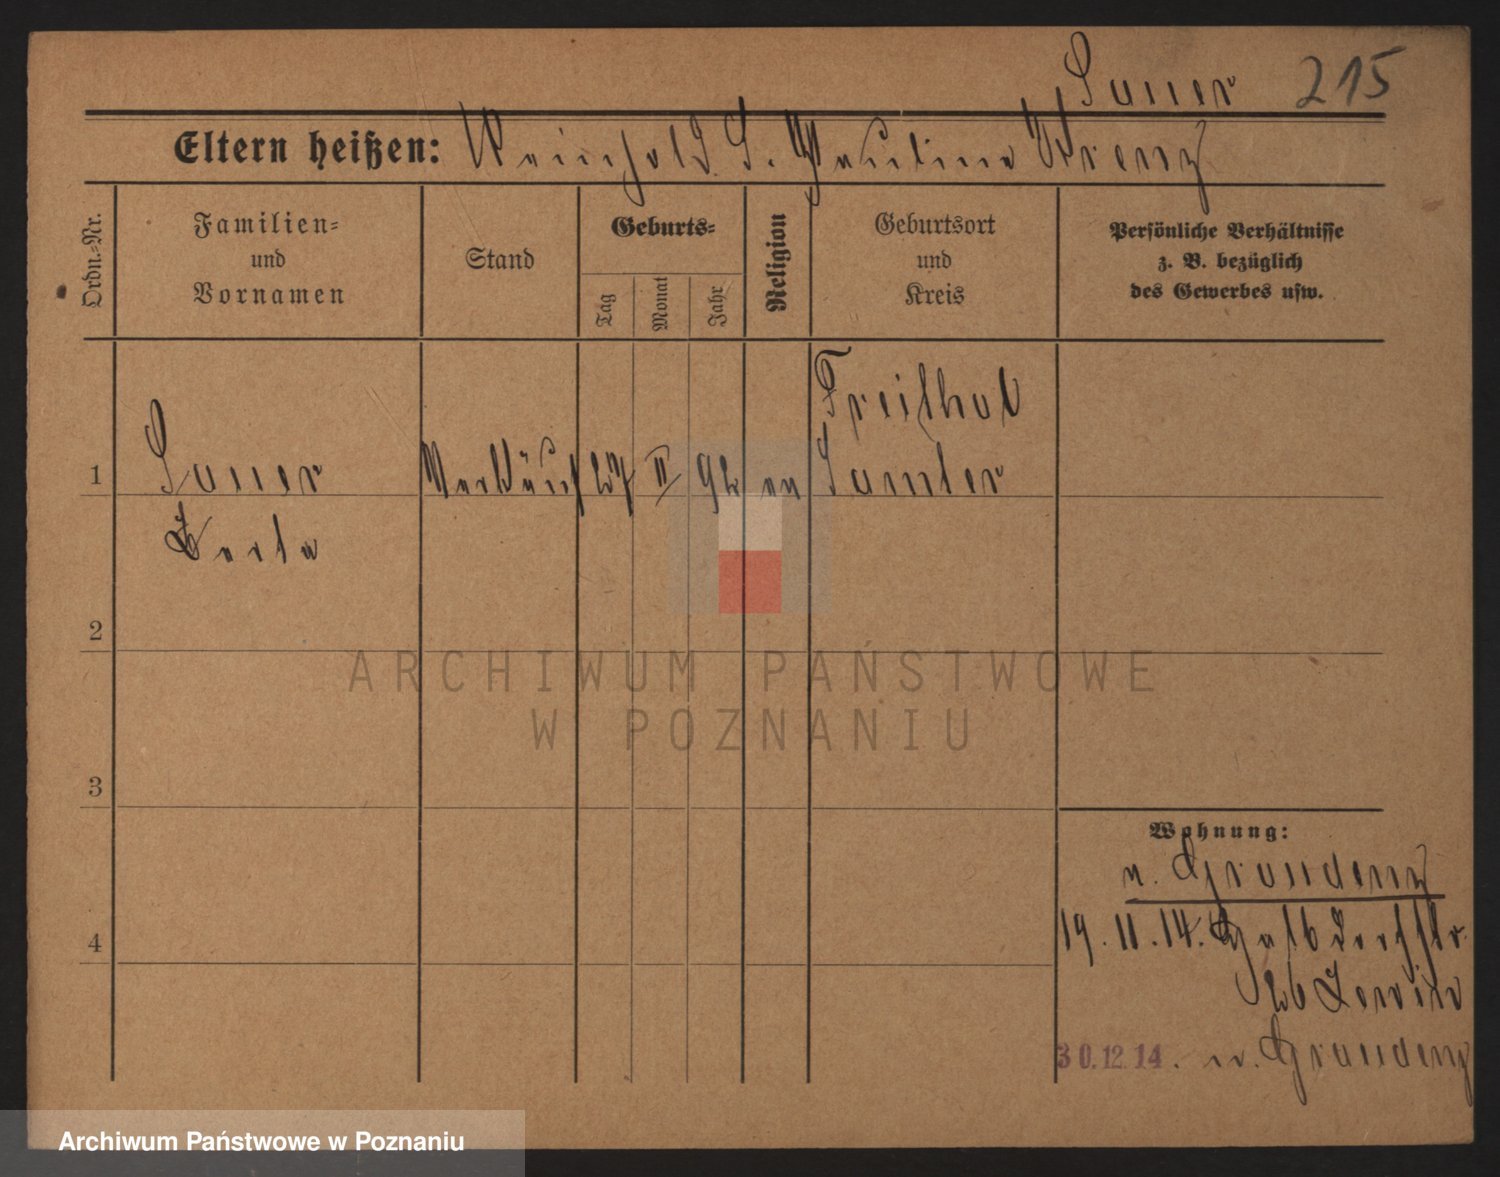 Sauer 215
Eltern heißen: Reinhold S. Pauline Krenz
Ordn.-Nr.
Familien-
und
Vornamen
Stand
Geburts-
Tag
Monat
Jahr
Religion
Geburtsort
und
Kreis
Persönliche Verhältnisse
z. B. bezüglich
des Gewerbes usw.
1
Sauer
Berta
Verkäuf
27
II
92
ev
Samter
2
3
4
Wohnung:
n. Graudenz
19.11.14.
30.12.14. n. Graudenz
ARCHIWUM PAŃSTWOWE
W POZNANIU
Archiwum Państwowe w Poznaniu